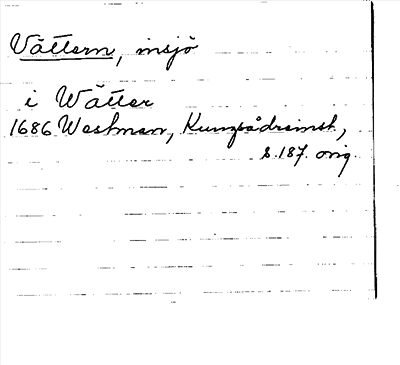 Vättern, insjö
i Wätter
1686 Westman, Kungsådreinst.,
s. 187. orig.